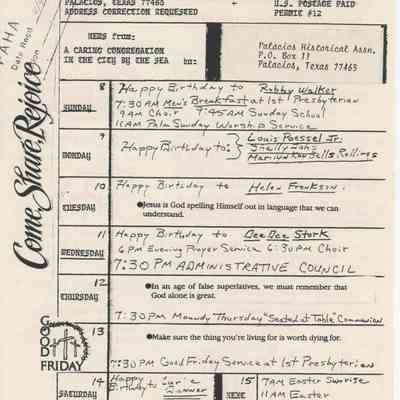 PALACIOS, TEXAS 77465
ADDRESS CORRECTION REQUESTED
+
U.S. POSTAGE PAID
PERMIT #12
PAHA
Date Recd
NEWS from:
A CARING CONGREGATION
IN THE CITY BY THE SEA to:
Palacios Historical Assn.
P.O. Box 11
Palacios, Texas 77465
Come, Share, Rejoice
8
SUNDAY
Happy Birthday to Robby Walker
7:30 AM Men's Breakfast at 1st Presbyterian
9 AM Choir 9:45 AM Sunday School
11 AM Palm Sunday Worship Service
9
MONDAY
Happy Birthday to:
Louis Poessel Jr.
Shelly
Marilyn Rollings
10
TUESDAY
Happy Birthday to Helen
●Jesus is God spelling Himself out in language that we can
understand.
11
WEDNESDAY
Happy Birthday to BeeBee Stork
6 PM Evening Prayer Service 6:30 PM Choir
7:30 PM ADMINISTRATIVE COUNCIL
12
THURSDAY
●In an age of false superlatives, we must remember that
God alone is great.
7:30 PM Maundy Thursday "Seated at Table" Communion
GOOD
FRIDAY
13
●Make sure the thing you're living for is worth dying for.
7:30 PM Good Friday Service at 1st Presbyterian
14
SATURDAY
Happy
Birthday to
15
NEXT
7AM Easter Sunrise
11 AM Easter